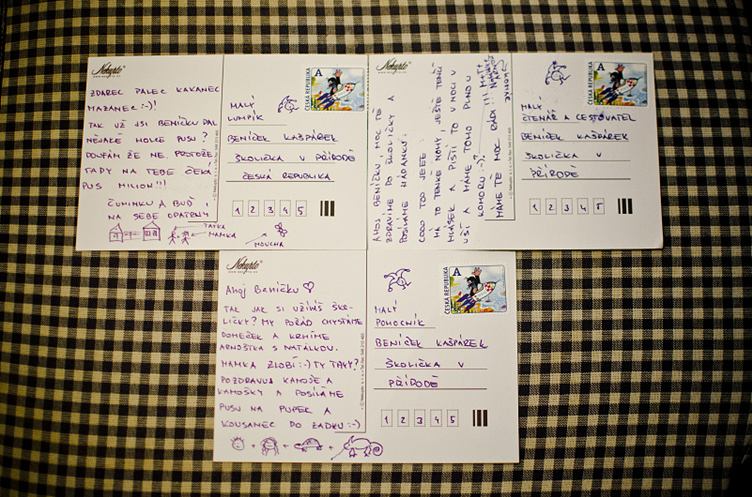 Nekupto
ZDAREC PALEC KAKANEC
MAZANEC :-)!
TAK UŽ JSI BENÍČKU DAL
NĚJAKÉ HOLCE PUSU?
DOUFÁM ŽE NE. PROTOŽE
TADY NA TEBE ČEKÁ
PUS MILION!!!
ČUMINKU A BUĎ I
NA SEBE OPATRNÝ
TAŤKA
MAMKA
MOUCHA
A
ČESKÁ REPUBLIKA
MALÝ
LUMPÍK
BENÍČEK KAŠPÁREK
ŠKOLIČKA V PŘÍRODĚ
ČESKÁ REPUBLIKA
1 2 3 4 5
Nekupto
AHOJ BENÍČKU MOC TĚ
ZDRAVÍME DO ŠKOLIČKY A
POSÍLÁME HÁDANKU.
COŽO TOO JEEE:
MÁ TO TENKÉ NOHY, JEŠTĚ TENČÍ
HLÁSEK A PIŠTÍ TO V NOCI V
UŠÍ A MÁME TOHO PLNOU
KOMORU :-)?
MÁME TĚ MOC RÁDI !!!
A
ČESKÁ REPUBLIKA
MALÝ
ČTENÁŘ A CESTOVATEL
BENÍČEK KAŠPÁREK
ŠKOLIČKA V
PŘÍRODĚ
1 2 3 4 5
Nekupto
Ahoj Beníčku
TAK JAK SI UŽÍVÁŠ ŠKO-
LIČKY? MY POŘÁD CHYSTÁME
DOMEČEK A KRMÍME
ARNOŠTKA S NATÁLKOU.
MAMKA ZLOBÍ :-) TY TAKY?
POZDRAVUJ KAMOŠE A
KAMOŠKY A POSÍLÁME
PUSU NA PUPEK A
KOUSANEC DO ZADKU :-)
+ + +
A
ČESKÁ REPUBLIKA
MALÝ
POMOCNÍK
BENÍČEK KAŠPÁREK
ŠKOLIČKA V
PŘÍRODĚ
1 2 3 4 5